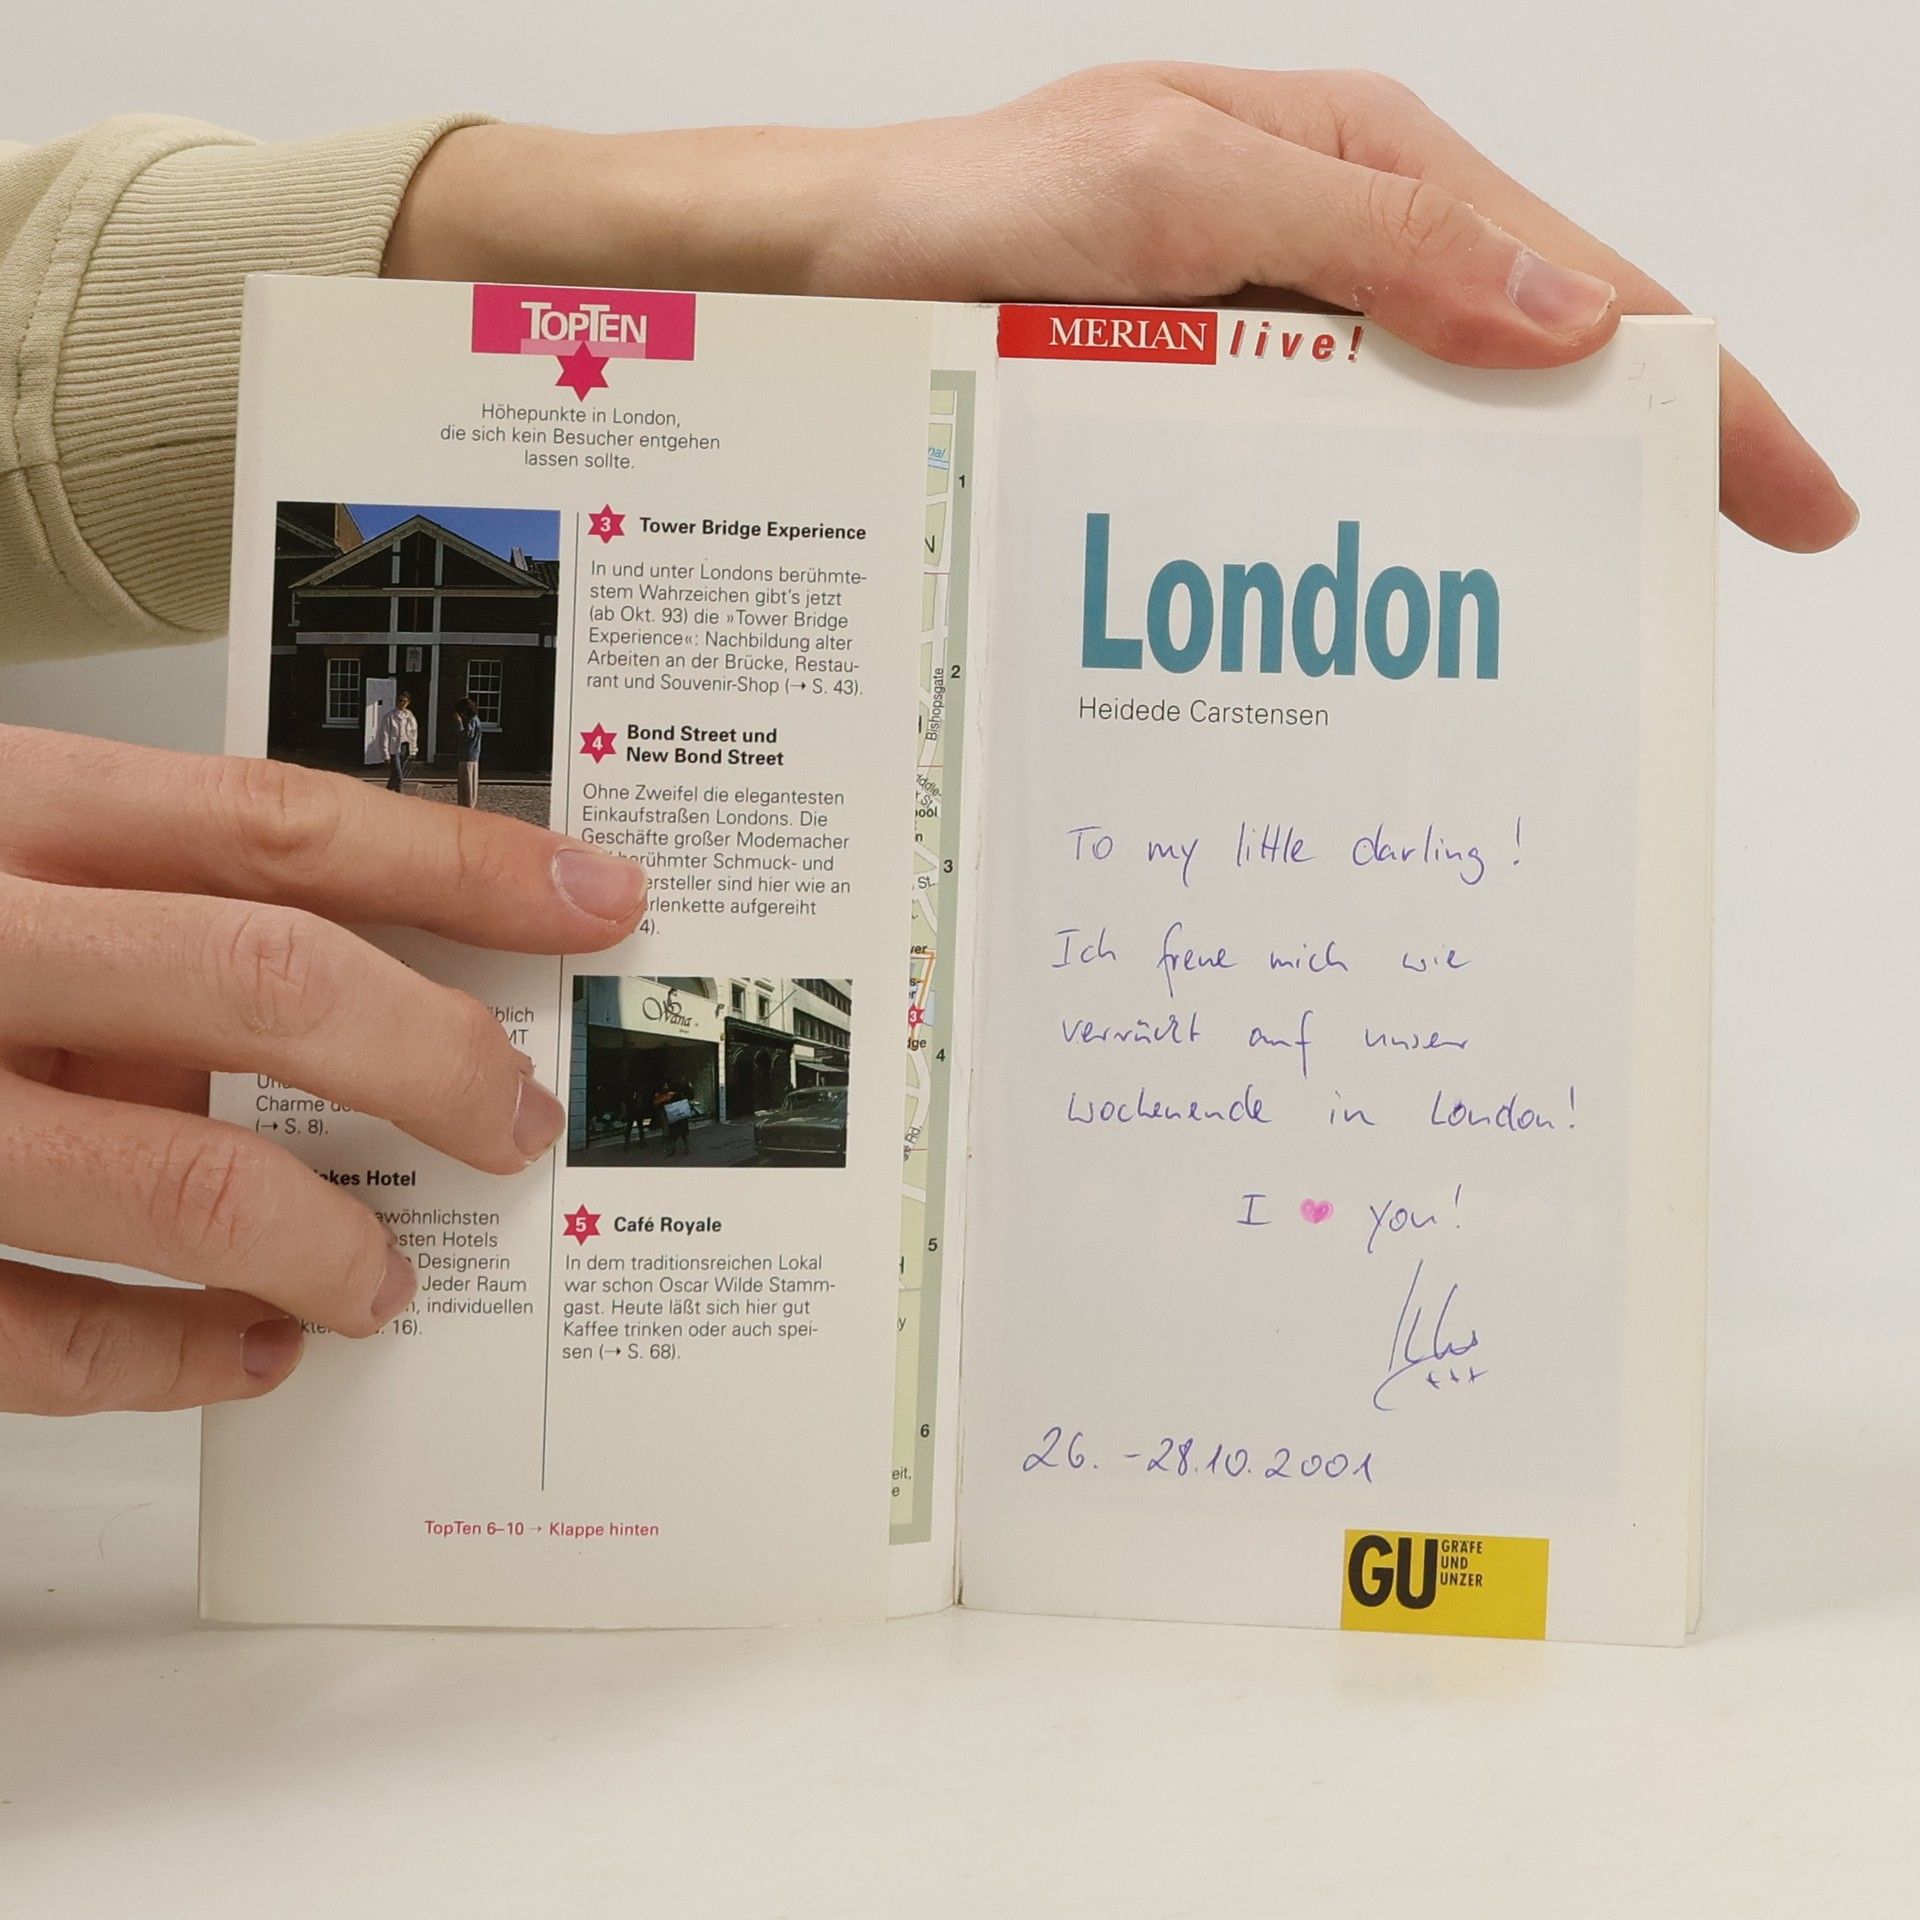 TOPTEN
Höhepunkte in London,
die sich kein Besucher entgehen
lassen sollte.
öblich
MT
Charme
(→ S. 8).
akes Hotel
ewöhnlichsten
sten Hotels
Designerin
Jeder Raum
individuellen
16).
3 Tower Bridge Experience
In und unter Londons berühmte-
stem Wahrzeichen gibt's jetzt
(ab Okt. 93) die »Tower Bridge
Experience«: Nachbildung alter
Arbeiten an der Brücke, Restau-
rant und Souvenir-Shop (→ S. 43).
4 Bond Street und
New Bond Street
Ohne Zweifel die elegantesten
Einkaufstraßen Londons. Die
Geschäfte großer Modemacher
berühmter Schmuck- und
ersteller sind hier wie an
rlenkette aufgereiht
4).
5 Café Royale
In dem traditionsreichen Lokal
war schon Oscar Wilde Stamm-
gast. Heute läßt sich hier gut
Kaffee trinken oder auch spei-
sen (→ S. 68).
TopTen 6–10 → Klappe hinten
nal
1
N
Bishopsgate
2
3
St.
4
Rd.
5
6
eit,
e
MERIAN live!
London
Heidede Carstensen
To my little darling!
Ich freue mich wie
verrückt auf unser
Wochenende in London!
I ♥ you!
+++
26. - 28.10.2001
GU GRÄFE
UND
UNZER